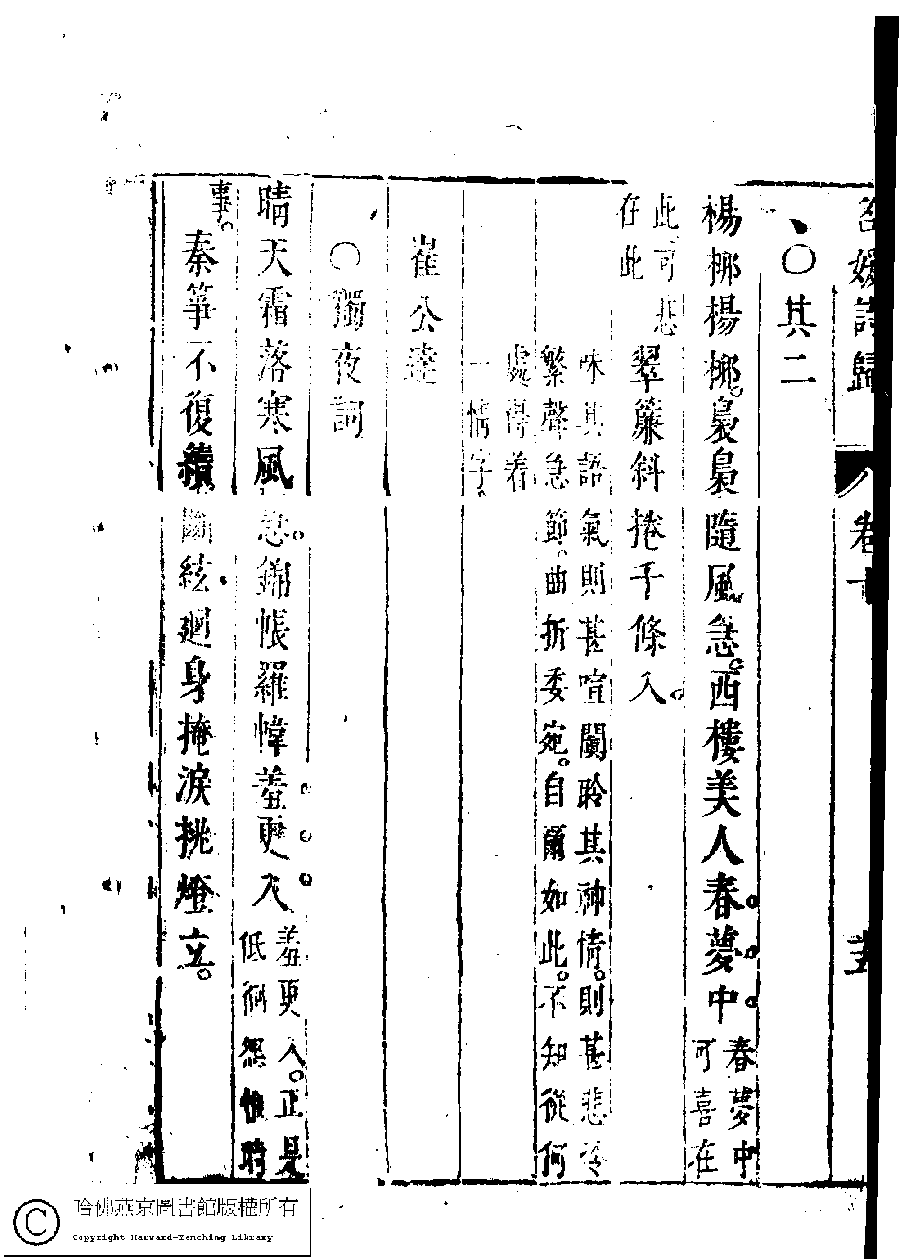 名媛詩歸 卷十 五
〇其二
楊柳楊柳裊裊隨風急西樓美人春夢中 春夢中可喜在
此可悲在此 翠簾斜捲千條入
味其語氣則甚喧闐聆其神情則甚悲
繁聲急節曲折委宛自爾如此不知從何
處得着
一情字
崔公達
〇獨夜詞
晴天霜落寒風急錦帳羅幃羞更入 羞更入正是低徊無惟時
事 秦箏不復續斷絃廻身掩淚挑燈立
哈佛燕京圖書館版權所有
Copyright Harvard-Yenching Library